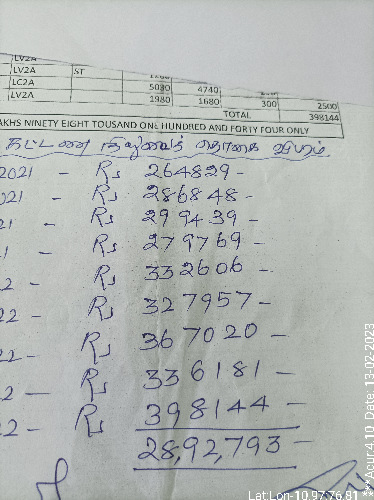 LV2A
LV2A ST 1260
LC2A 5080 4740
LV2A 1980 1680 300 2500
TOTAL 398144
AKHS NINETY EIGHT TOUSAND ONE HUNDRED AND FORTY FOUR ONLY
கட்டண நிலுவைத் தொகை விபரம்
2021 - Rs 264829-
021 - Rs 286848-
21 - Rs 299439-
1 - Rs 279769-
2 - Rs 332606-
22 - Rs 327957-
22 - Rs 367020-
2 - Rs 336181-
22 - Rs 398144-
28,92,793-
Lat:Lon-10.9776,81
**Acur:4.10, Date:13-02-2023